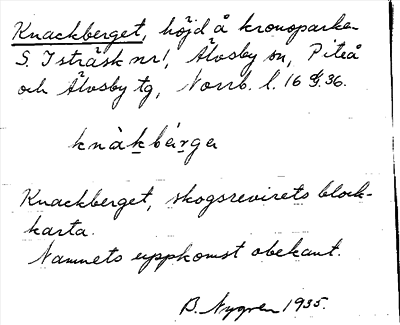 Knackberget, höjd å kronoparken
S. Isträsk nr 1, Älvsby sn, Piteå
och Älvsby tg, Norrb. l. 16 36.
knàkbǽrgα
Knackberget, skogsrevirets block-
karta.
Namnets uppkomst obekant.
B. Nygren 1935.